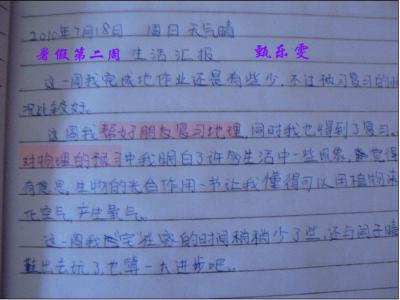 2010年7月18日 周日 天气晴
暑假第二周 生活汇报 甄乐雯
这一周我完成地作业还是有些少,不过预习复习的情
况比较好。
这周我帮好朋友复习地理,同时我也得到了复习。
对物理的预习中我明白了许多生活中一些现象,觉得
有意思,生物的光合作用一书让我懂得可以用植物来
化空气,产生氧气。
这一周我"宅"在家的时间稍稍少了些,还与闫子晴
出去玩了,也算一大进步吧。